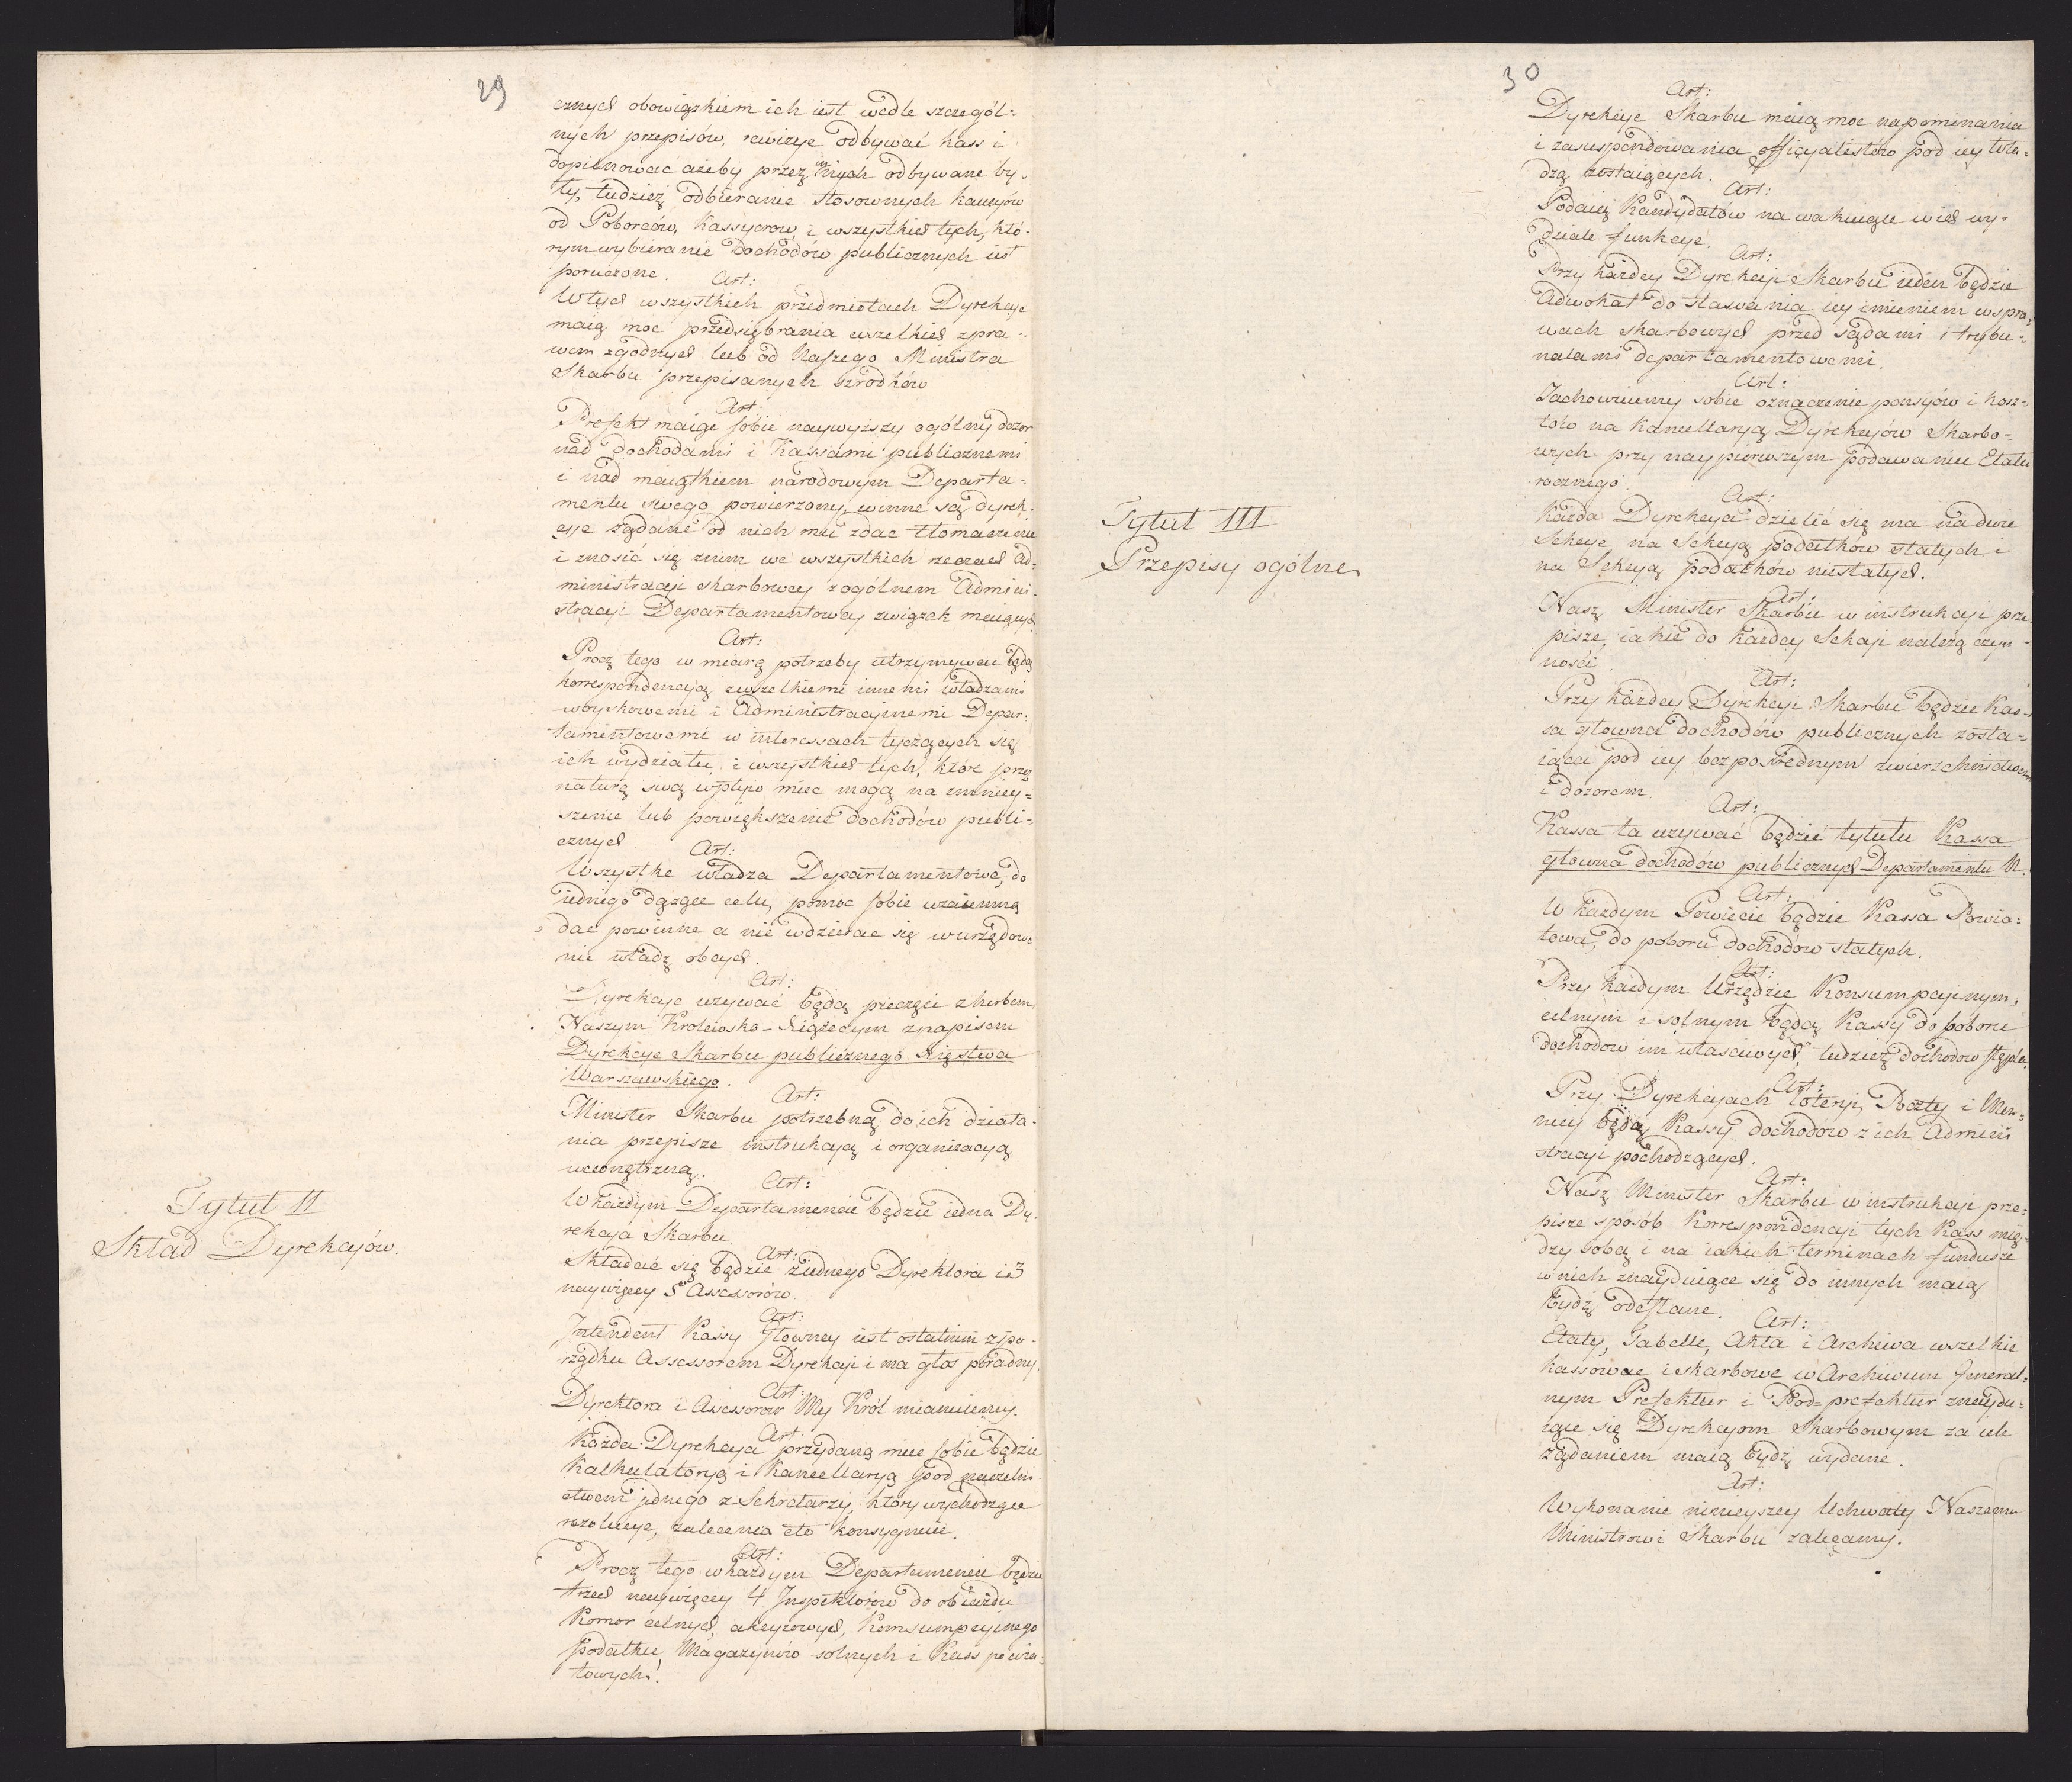 29
cznych obowiązkiem ich iest wedle szczegól=
nych przepisów, rewizye odbywać kass i
dopilnować ażeby przez innych odbywane by-
ły, tudzież odbieranie stosownych kaucyów
od Poborców, Kassyerow, i wszystkich tych, któ-
rym wybieranie Dochodów publicznych iest
poruczone.
Art:
W tych wszystkich przedmiotach Dyrekcye
maią moc przedsiębrania wszelkich z pra-
wem zgodnych lub od Naszego Ministra
Skarbu przepisanych szrodków
Art:
Prefekt maiąc sobie naywyższy ogólny dozor
nad dochodami i Kassami publicznemi
i nad maiątkiem narodowym Departa-
mentu swego powierzony, winne są dyrek-
cye żądane od nich mu zdac tłomaczenie
i znosić się z nim we wszystkich rzeczach Ad-
ministracyi skarbowey z ogólnem Admini-
stracyi Departamentowey związek maiących.
Art:
Procz tego w miarę potrzeby utrzymywać będą
korrespondencyą z wszelkiemi innemi władzami
woyskowemi i Administracyinemi Depar-
tamentowemi w interessach tyczących się
ich wydziału, i wszystkich tych, które przez
naturę swą wpływ mieć mogą na zmniey-
szenie lub powiększenie dochodów publi-
cznych
Art:
Wszystkie władze Departamentowe, do
iednego dążąc celu, pomoc sobie wzaiemną
dac powinne a nie wdzierac się w urzędowa
nie władz obcych.
Art:
Dyrekcye używać będą pieczęci z herbem
Naszym Krolewsko-Xiążęcym z napisem
Dyrekcye Skarbu publicznego Xięstwa
Warszawskiego.
Art:
Minister Skarbu potrzebną do ich działa-
nia przepisze instrukcyą i organizacyą
wewnętrzną.
Tytuł II
Skład Dyrekcyów.
Art:
W każdym Departamencie będzie iedna Dy-
rekcya Skarbu.
Art:
Składać się będzie z iednego Dyrektora i 3
naywięcey 5 Assessorów.
Art:
Intendent Kassy Głowney iest ostatnim z po-
rządku Assessorem Dyrekcyi i ma głos poradny.
Art:
Dyrektora i Assessorow My Król mianuiemy.
Art:
Każda Dyrekcya przydaną mieć sobie będzie
Kalkulatoryą i Kancellaryą pod naczelni-
ctwem iednego z Sekretarzy, który wychodzące
rezolucye, zalecenia etc konsygnuie.
Art:
Procz tego w każdym Departamencie będzie
trzech naywięcey 4 Inspektorów do obiazdu
Komor celnych, akcyzowych, Komsumpcyinego
podatku, Magazynów solnych i Kass powia-
towych.
30
Art:
Dyrekcye Skarbu maią moc napominania
i zasuspendowania officyalistów pod iey wła-
dzą zostaiących.
Art:
Podaią Kandydatów na wakuiące w ich wy-
dziale funkcye.
Art:
Przy każdey Dyrekcyi Skarbu ieden będzie
Adwokat do stawania iey imieniem w spra-
wach skarbowych przed sądami i trybu-
nałami departamentowemi.
Art:
Zachowuiemy sobie oznaczenie pensyów i kosz-
tów na Kancellaryą Dyrekcyów Skarbo-
wych przy naypierwszym podawaniu Etatu
rocznego
Tytuł III
Przepisy ogólne
Art:
Każda Dyrekcya dzielić się ma na dwie
Sekcye na Sekcyą podatków stałych i
na Sekcyą podatków niestałych.
Art:
Nasz Minister Skarbu w instrukcyi prze-
pisze, iakie do każdey Sekcyi należą czyn-
ności.
Art:
Przy każdey Dyrekcyi Skarbu będzie Kas-
sa głowna dochodów publicznych zosta-
iąca pod iey bezpośrednym zwierzchnictwem
i dozorem.
Art:
Kassa ta używać będzie tytułu Kassa
głowna dochodów publicznych Departamentu N.
Art:
W każdym Powiecie będzie Kassa Powia-
towa, do poboru dochodów stałych.
Art:
Przy każdym Urzędzie Konsumpcyinym,
celnym i solnym będą Kassy do poboru
dochodow im własciwych, tudzież dochodow stępla.
Art:
Przy Dyrekcyach Loteryi, Poczty i Men-
nicy będą Kassy dochodow z ich Admini
stracyi pochodzących.
Art:
Nasz Minister Skarbu w instrukcyi prze-
pisze sposób Korrespondencyi tych Kass mię-
dzy sobą i na iakich terminach fundusze
w nich znayduiące się do innych maią
bydź odesłane.
Art:
Etaty, Tabelle, Akta i Archiwa wszelkie
kassowe i skarbowe w Archiwum General-
nym Prefektur i Pod-prefektur znaydu-
iące się Dyrekcyom Skarbowym za ich
żądaniem maią bydź wydane.
Art:
Wykonanie ninieyszey Uchwały Naszemu
Ministrowi Skarbu zalecamy.